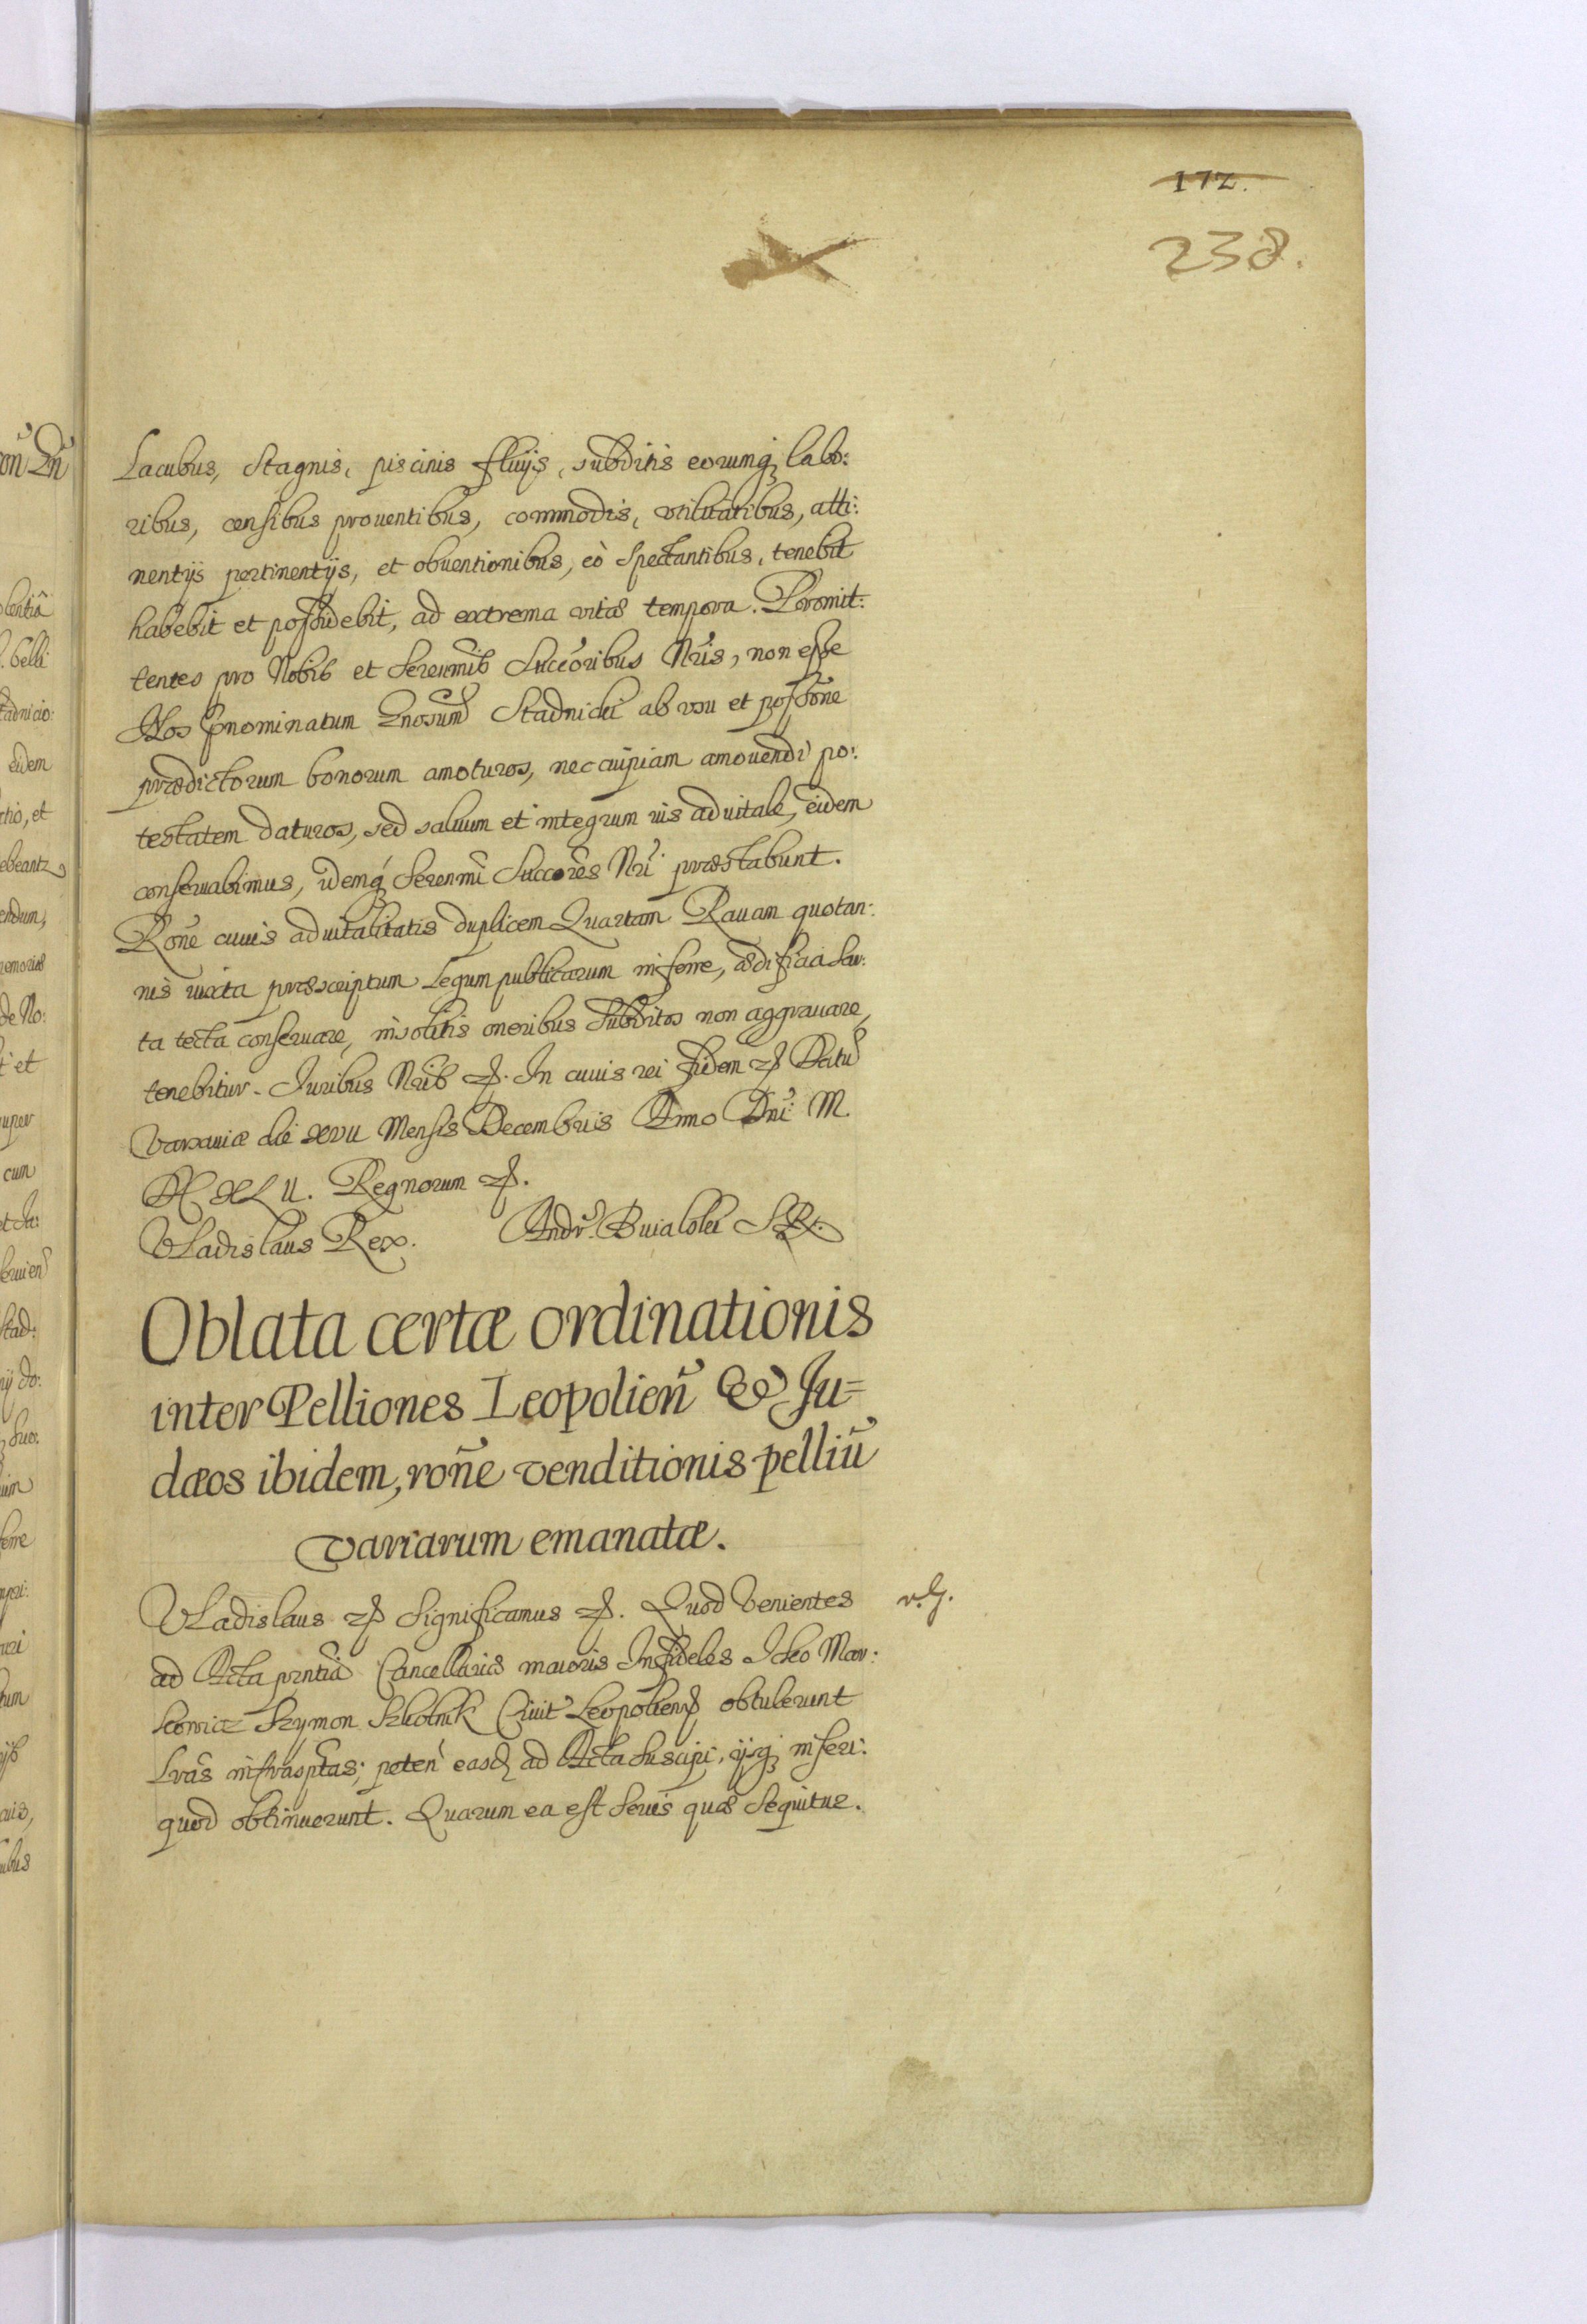 172.
238.
Lacubus, Stagnis, piscinis fluijs, subditis eorumq́ labo:
ribus, censibus prouentibus, commodis, vtilitatibus, atti:
nentijs pertinentijs, et obuentionibus, eò spectantibus, tenebit
habebit et possidebit, ad extrema vitæ tempora. Promit:
tentes pro Nobis et Serenmis Succoribus Nris, non esse
Nos pnominatum Gnosum Stadnicki ab vsu et possõne
prædictorum bonorum amoturos, nec cuipiam amouendi po:
testatem daturos, sed saluum et integrum ius aduitale, eidem
conseruabimus, idemq́ Serenmi Succores Nri præstabunt.
Rone cuius aduitalitatis duplicem Quartam Rauam quotan:
nis iuxta præscriptum Legum publicarum inferre, ædificia sar:
ta tecta conseruare, insolitis oneribus subditos non aggrauare,
tenebitur. Iuribus Nris etc. In cuius rei fidem etc Datu
Varsauiæ die XVII Mensis Decembris Anno Dni M.
DCXLII. Regnorum etc.
Vladislaus Rex. Andr. Buialski SRM.
Oblata certæ ordinationis
inter Pelliones Leopolien̄ & Ju=
dæos ibidem, rone venditionis pelliū
variarum emanatæ.
Vladislaus etc Significamus etc. Quod Venientes
ad Acta prntia Cancellariæ maioris Infideles Icko Mar:
kowicz Szymon Szkolnik Civit Leopolien obtulerunt
Lras infrascptas; peten easdq ad Acta suscipi, ijsq́ inseri:
quod obtinuerunt. Quarum ea est series quæ sequitur.